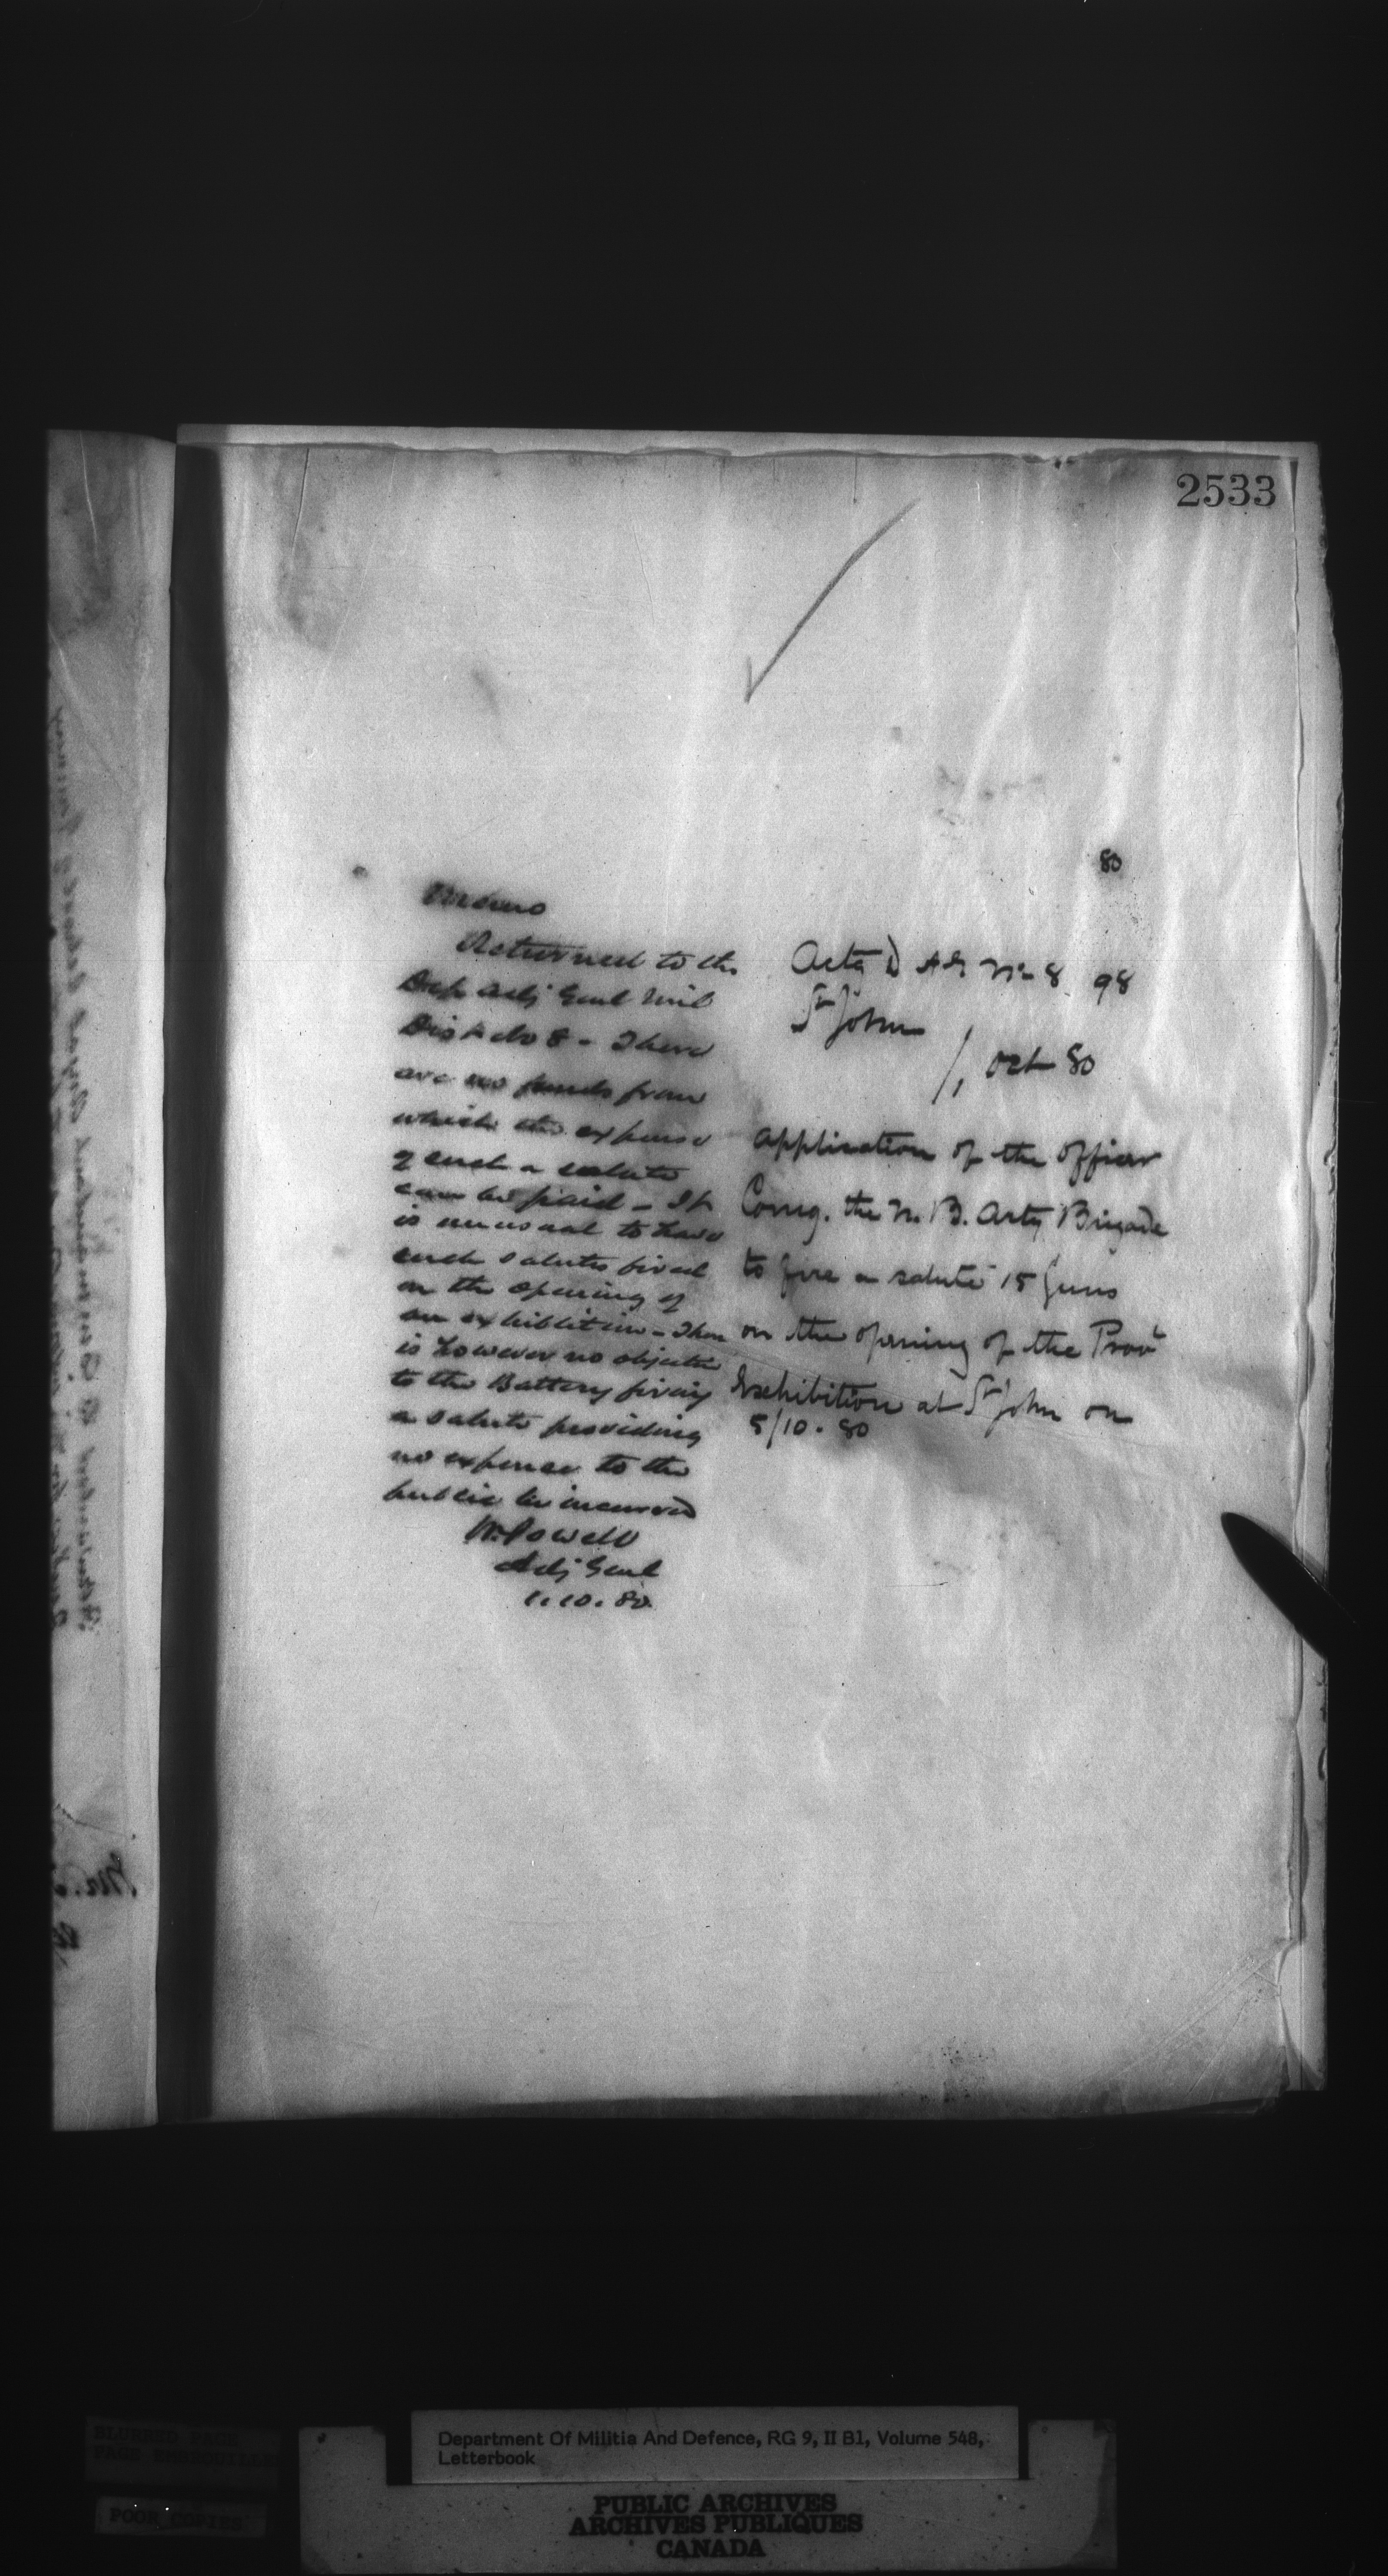 2533
80
Memo
Returned to the
Dep Adj Genl Mil
Dist No 8 - There
are no funds from
which the expense
of such a salute
can be paid - It
is unusual to have
such salutes fired
on the opening of
an exhibition - There
is however no objection
to the Battery firing
a salute providing
no expense to the
public be incurred
W. Powell
Adj Genl
1.10.80
Actg D A G No 8 98
St John
1, Oct 80
Application of the Officer
Comg. the N. B. Arty Brigade
to fire a salute 15 Guns
on the opening of the Provl
Exhibition at St John on
5/10.80
Department Of Militia And Defence, RG 9, II B1, Volume 548,
Letterbook
BLURRED PAGE
PAGE EMBROUILLEE
POOR COPIES
PUBLIC ARCHIVES
ARCHIVES PUBLIQUES
CANADA